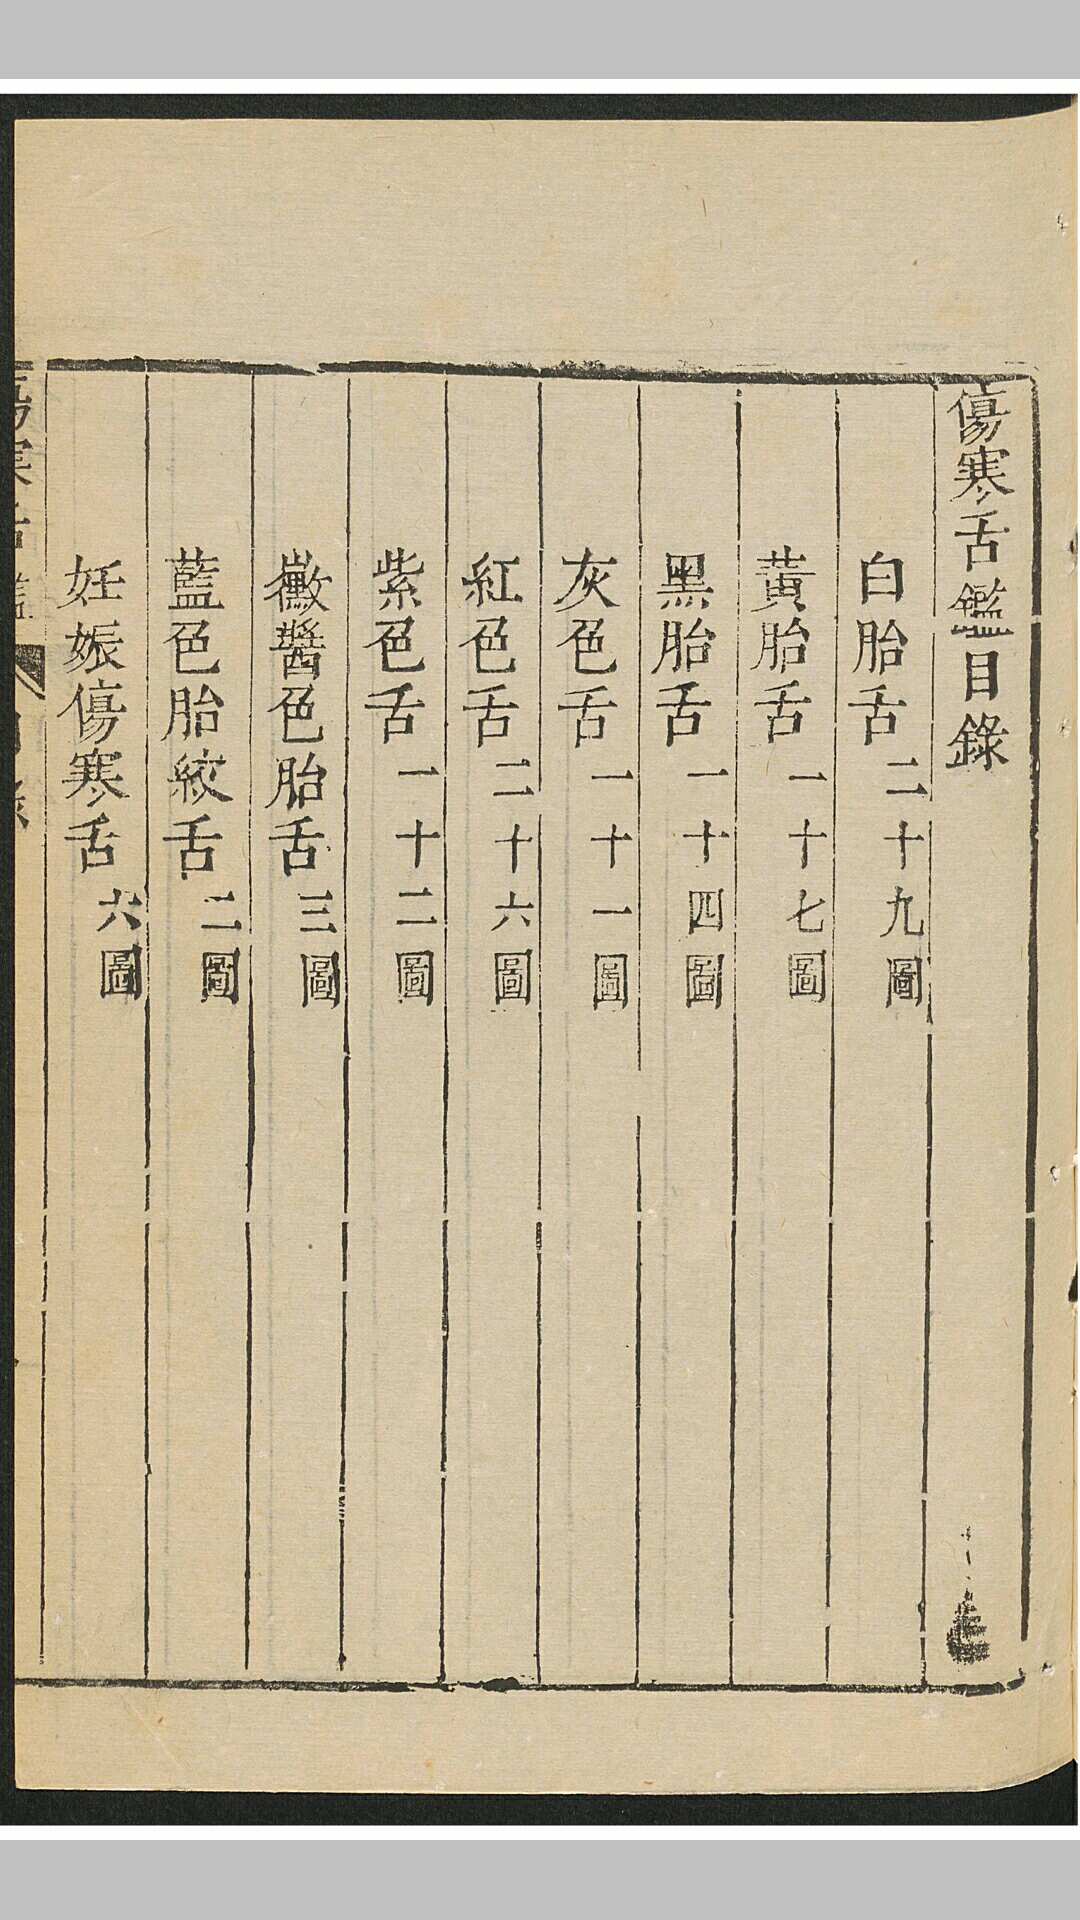 傷寒舌鑑目錄
白胎舌二十九圖
黃胎舌一十七圖
黑胎舌一十四圖
灰色舌一十一圖
紅色舌二十六圖
紫色舌一十二圖
黴醬色胎舌三圖
藍色胎紋舌二圖
妊娠傷寒舌六圖
傷寒舌鑑
目錄